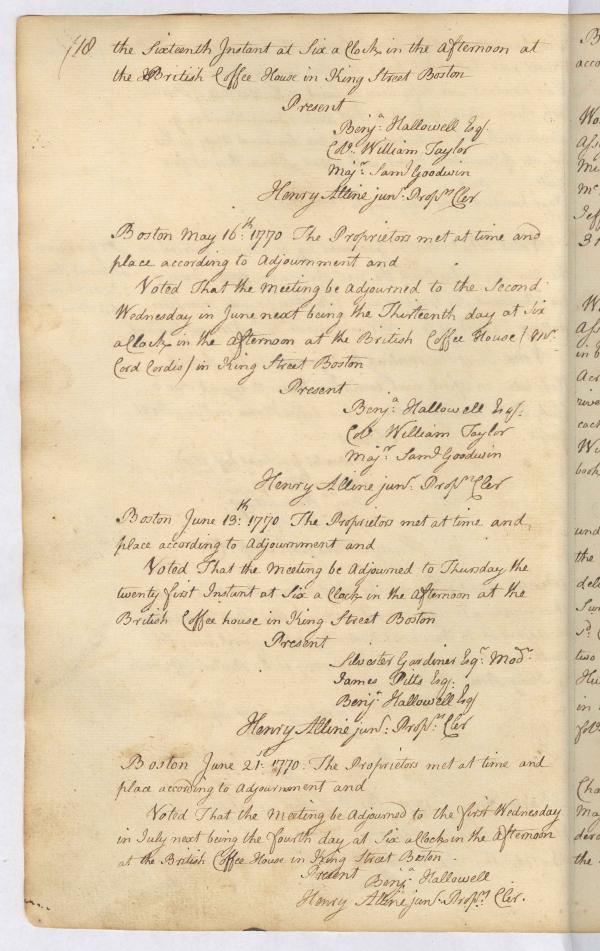 118
the Sixteenth Instant at Six a Clock in the Afternoon at
the British Coffee House in King Street Boston
Present
Benj.a Hallowell Esq.r
Col.o William Taylor
Maj.r Sam.l Goodwin
Henry Alline jun.r Prop.rs Cler
Boston May 16.th 1770 The Proprietors met at time and
place according to Adjournment and
Voted That the Meeting be Adjourned to the Second
Wednesday in June next being the Thirteenth day at Six
a Clock in the Afternoon at the British Coffee House /
Cord Cordis / in King Street Boston
Present
Benj.a Hallowell Esq.r
Col.o William Taylor
Maj.r Sam.l Goodwin
Henry Alline jun.r Prop.rs Cler
Boston June 13.th 1770 The Proprietors met at time and
place according to Adjournment and
Voted That the Meeting be Adjourned to Thursday the
twenty first Instant at Six a Clock in the Afternoon at the
British Coffee house in King Street Boston
Present
Silvester Gardiner Esq.r Mod.r
James Pitts Esq.r
Benj.a Hallowell Esq.r
Henry Alline jun.r Prop.rs Cler
Boston June 21.st 1770. The Proprietors met at time and
place according to Adjournment and
Voted That the Meeting be Adjourned to the first Wednesday
in July next being the fourth day at Six a Clock in the Afternoon
at the British Coffee House in King Street Boston.
Present Benj.a Hallowell
Henry Alline jun.r Prop.rs Cler.